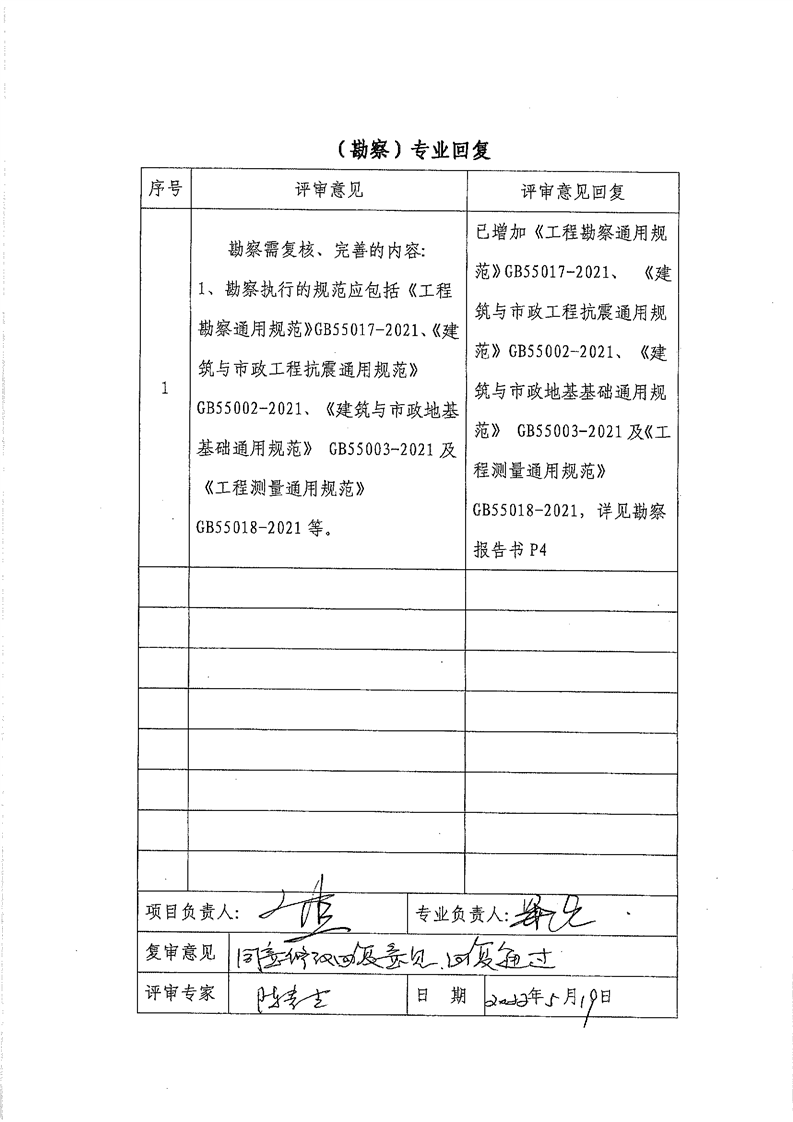 （勘察）专业回复
序号 评审意见 评审意见回复
1
勘察需复核、完善的内容:
1、勘察执行的规范应包括《工程
勘察通用规范》GB55017-2021、《建
筑与市政工程抗震通用规范》
GB55002-2021、《建筑与市政地基
基础通用规范》 GB55003-2021 及
《工程测量通用规范》
GB55018-2021 等。
已增加《工程勘察通用规
范》GB55017-2021、 《建
筑与市政工程抗震通用规
范》GB55002-2021、《建
筑与市政地基基础通用规
范》 GB55003-2021 及《工
程测量通用规范》
GB55018-2021, 详见勘察
报告书 P4
项目负责人: 专业负责人:
复审意见 同意修改回复意见.回复通过
评审专家 日 期 2022年5月19日